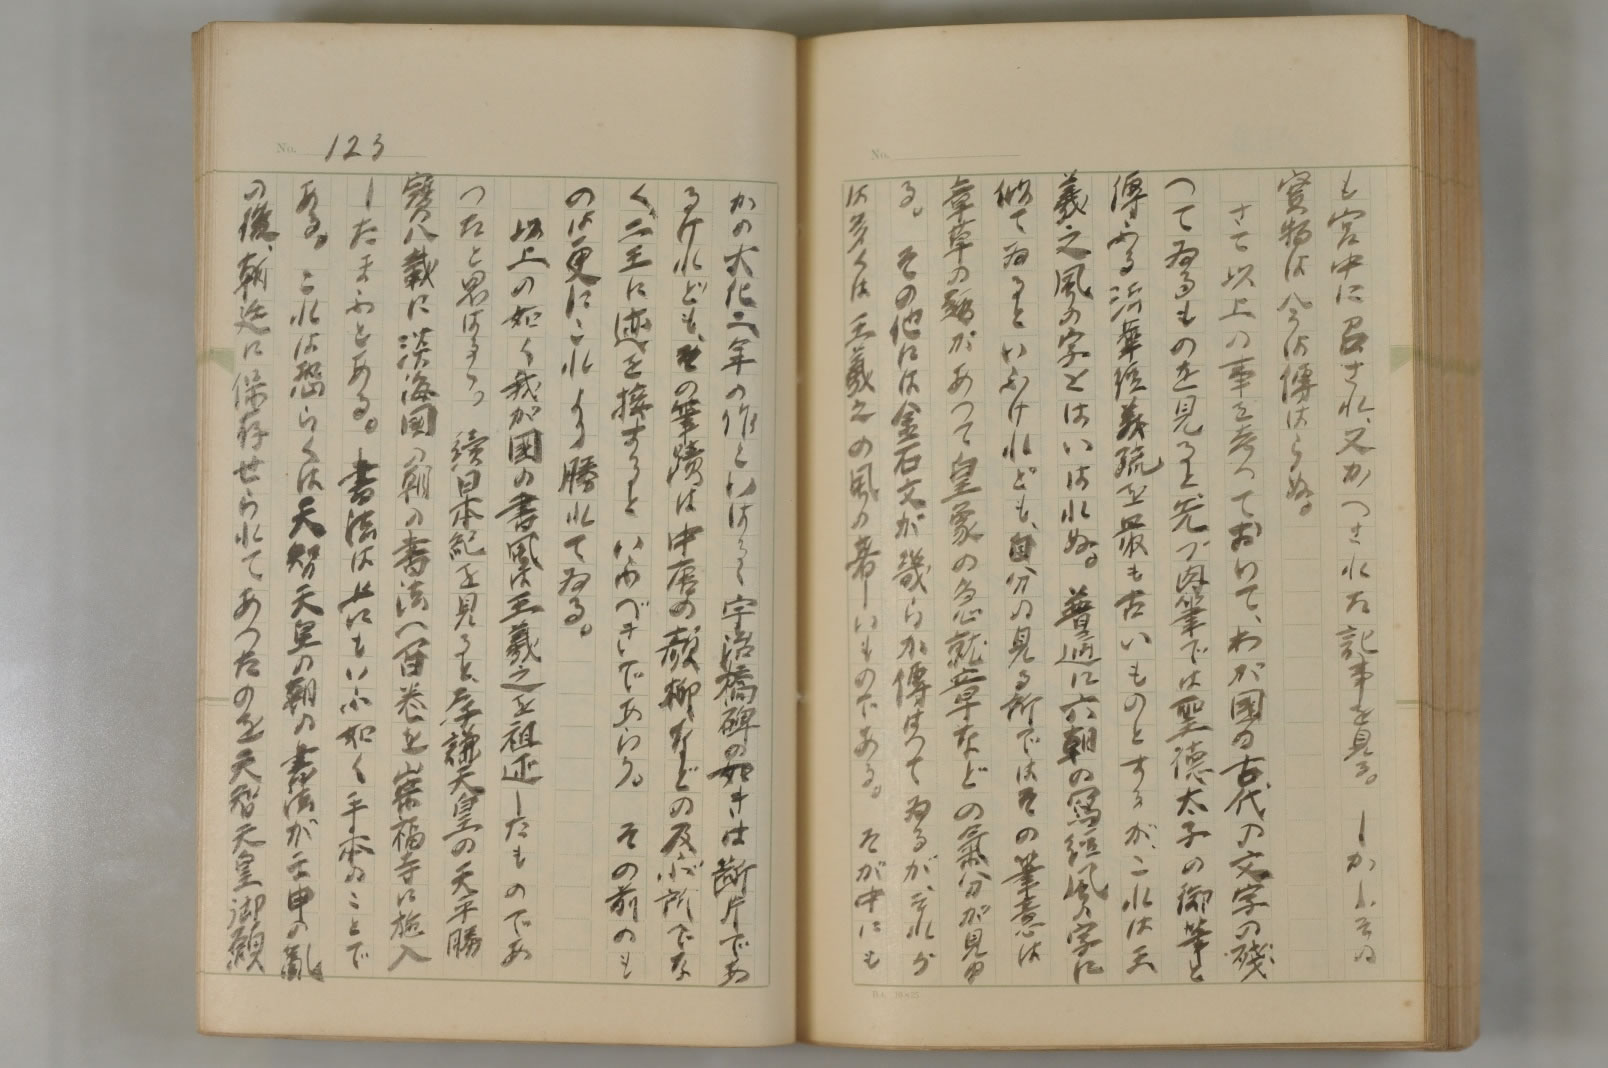 も宮中に召され、又かつされた記事を見る。しかしその
實物は今は傳はらぬ。
さて以上の事を考へておいて、わが国の古代の文字の残
つてゐるものを見ると先づ肉筆では聖徳太子の御筆と
傳ふる法華経義疏を最も古いものとするが、これは王
羲之風の字とはいはれぬ。普通に六朝の寫経風の字に
似てゐるといふけれども、自分の見る所ではその筆意は
章草の趣があつて皇象の急就章などの氣分が見ゆ
る。その他には金石文が幾らか傳はつてゐるが、それが
は多くは王羲之の風の著しいものである。そが中にも
No.
No. 123
かの大化二年の作といはるゝ宇治橋碑の如きは断片であ
るけれども、その筆蹟は中唐の顔柳などの及ぶ所でな
く、二王に迹を接するといふべきであらう。その前のも
のは更にこれより勝れてゐる。
以上の如く我が國の書風は王羲之を祖述したものであ
つたと思はるゝ。續日本紀を見ると、孝謙天皇の天平勝
寳八載に淡海國の朝の書法一百巻を崇福寺に施入
したまふとある。書法は世にもいふ如く手本のことで
ある。これは恐らくは天智天皇の朝の書法が壬申の亂
の後、朝廷に保存せられてあつたのを天智天皇御願